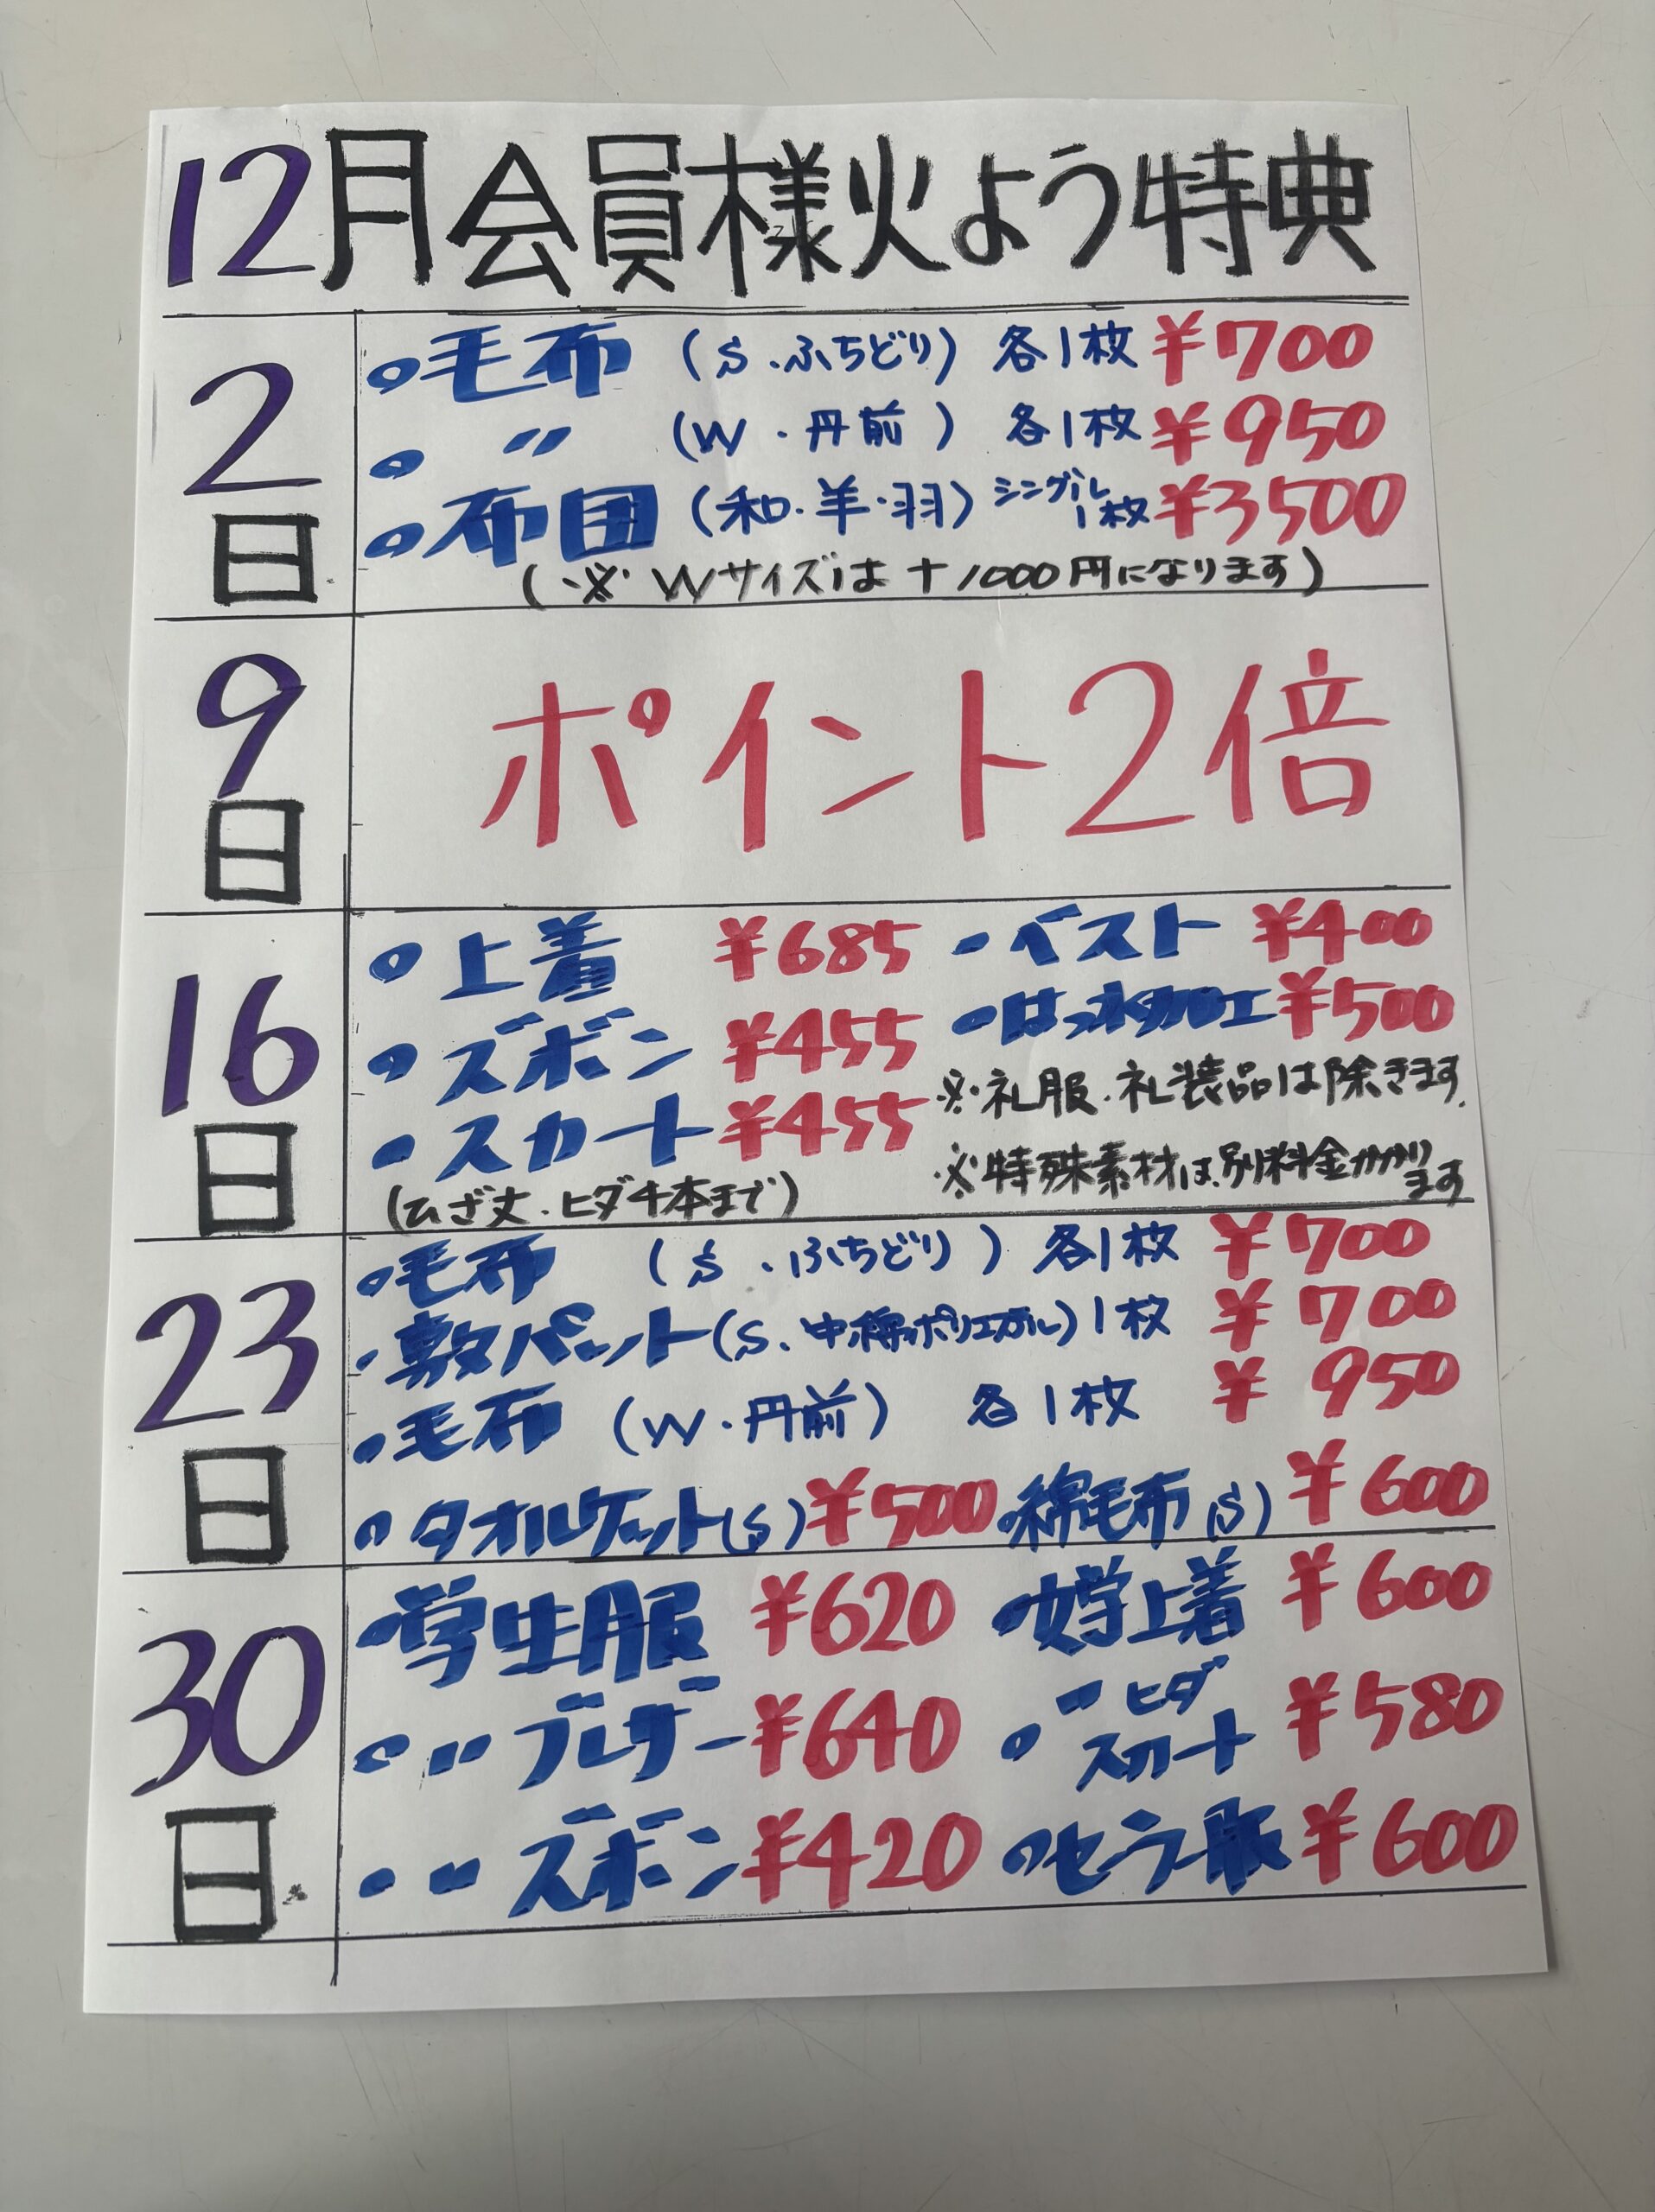 12月会員様火よう特典
2日
・毛布 (S、ふちどり) 各1枚 ¥700
・〃 (W・丹前) 各1枚 ¥950
・布団 (和・羊・羽) シングル1枚 ¥3500
(※Wサイズは+1000円になります)
9日
ポイント2倍
16日
・上着 ¥685 ・ベスト ¥400
・ズボン ¥455 ・はっ水加工 ¥500
・スカート ¥455 ※礼服、礼装品は除きます。
(ひざ丈、ヒダ千本まで) ※特殊素材は別料金かかります
23日
・毛布 (S、ふちどり) 各1枚 ¥700
・敷パット(S、中綿ポリエステル) 1枚 ¥700
・毛布 (W・丹前) 各1枚 ¥950
・タオルケット(S) ¥500 ・綿毛布(S) ¥600
30日
・学生服 ¥620 ・女学上着 ¥600
・〃ブレザー ¥640 ・〃ヒダスカート ¥580
・〃ズボン ¥420 ・セーラー服 ¥600